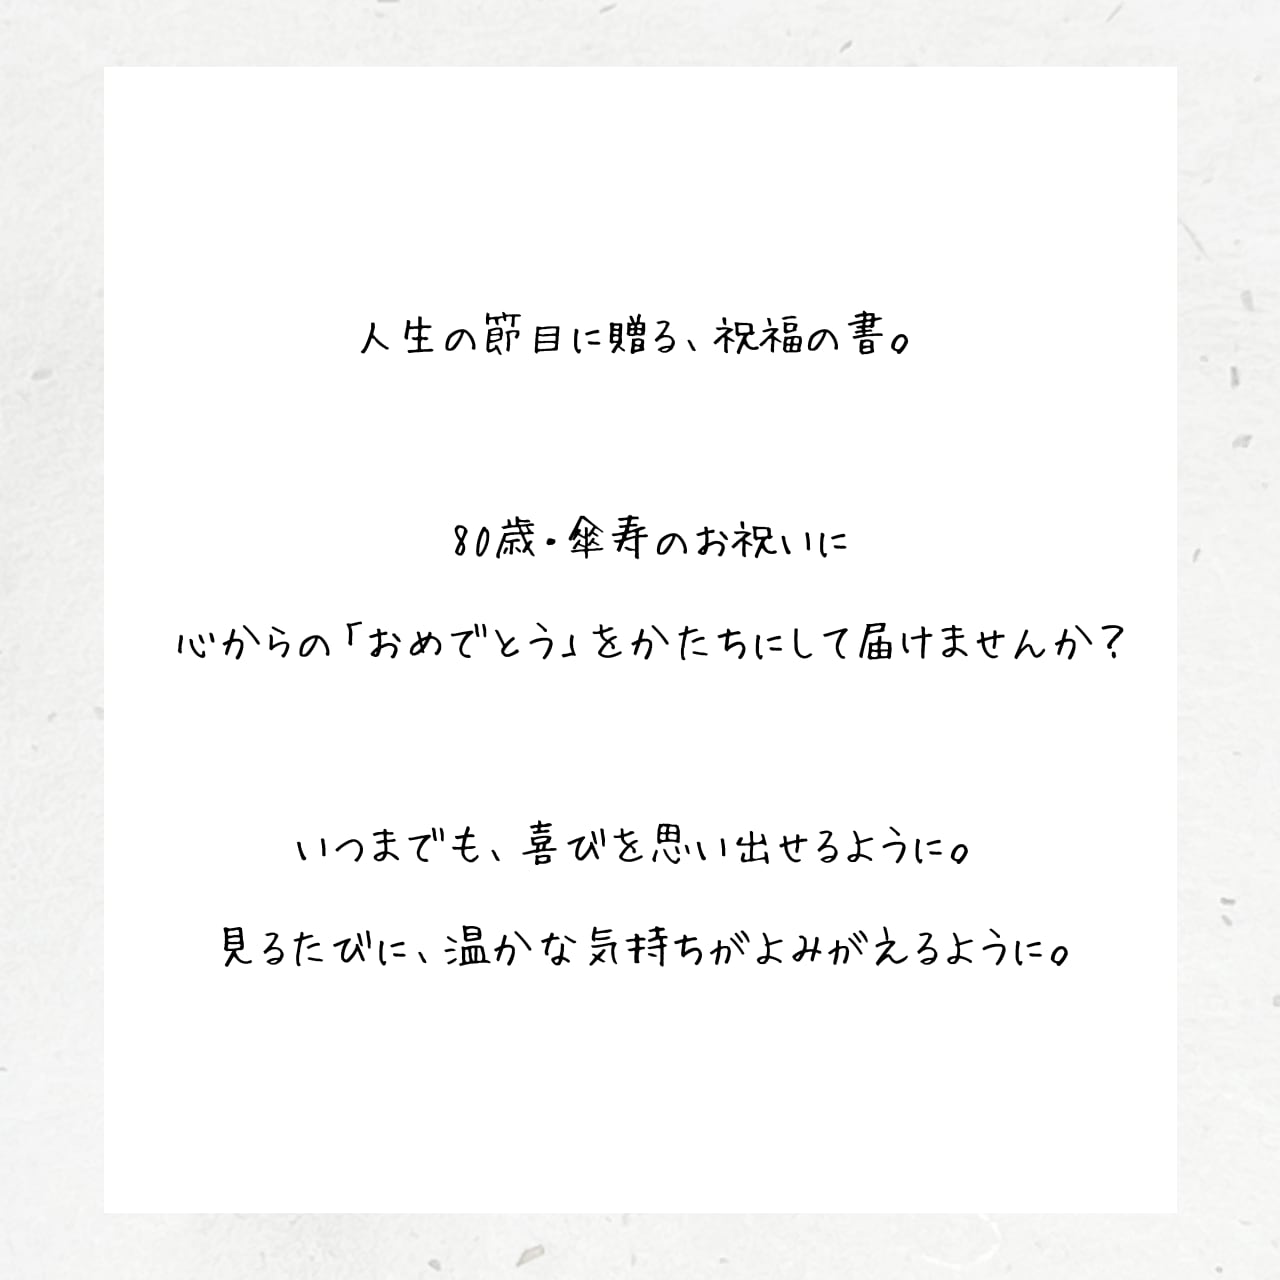 人生の節目に贈る、祝福の書。
80歳・傘寿のお祝いに
心からの「おめでとう」をかたちにして届けませんか？
いつまでも、喜びを思い出せるように。
見るたびに、温かな気持ちがよみがえるように。